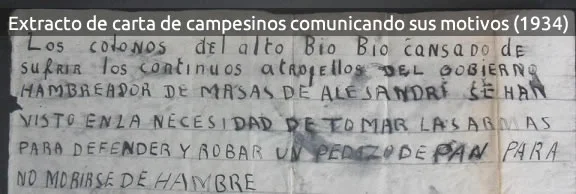 Extracto de carta de campesinos comunicando sus motivos (1934)
Los colonos del alto Bio Bio cansado de
sufrir los continuos atropellos DEL GOBIERNO
HAMBREADOR DE MASAS DE ALESANDRI SE HAN
VISTO EN LA NECESIDAD DE TOMAR LAS ARMAS
PARA DEFENDER Y ROBAR UN PEDAZO DE PAN PARA
NO MORIRSE DE HAMBRE